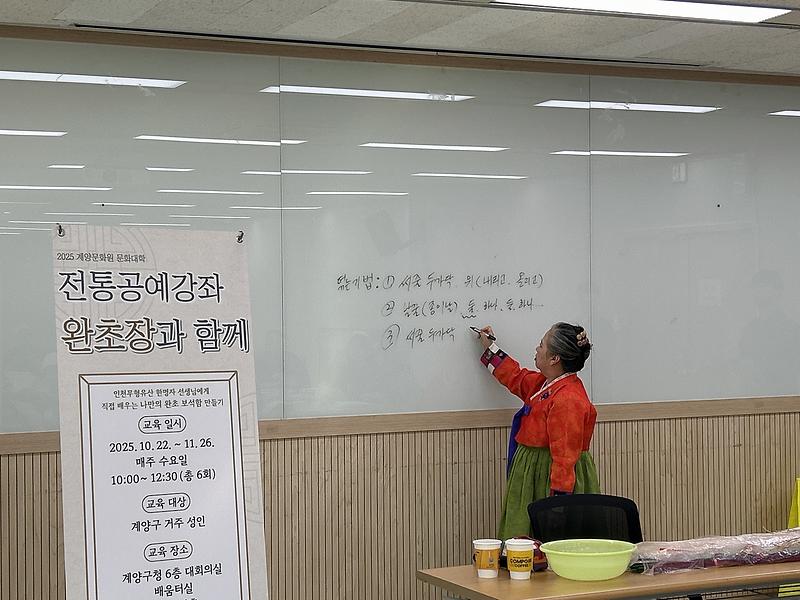 2025 계양문화원 문화대학
전통공예강좌
완초장과 함께
인천무형유산 한명자 선생님에게
직접 배우는 나만의 완초 보석함 만들기
교육 일시
2025. 10. 22. ~ 11. 26.
매주 수요일
10:00~ 12:30 (총 6회)
교육 대상
계양구 거주 성인
교육 장소
계양구청 6층 대회의실
배움터실
엮는기법: ① 씨줄 두가닥 위(내리고, 올리고)
② 날갈(종이날) 둘, 하나, 둘, 하나...
③ 씨줄 두가닥
COMPOSE
COFFEE